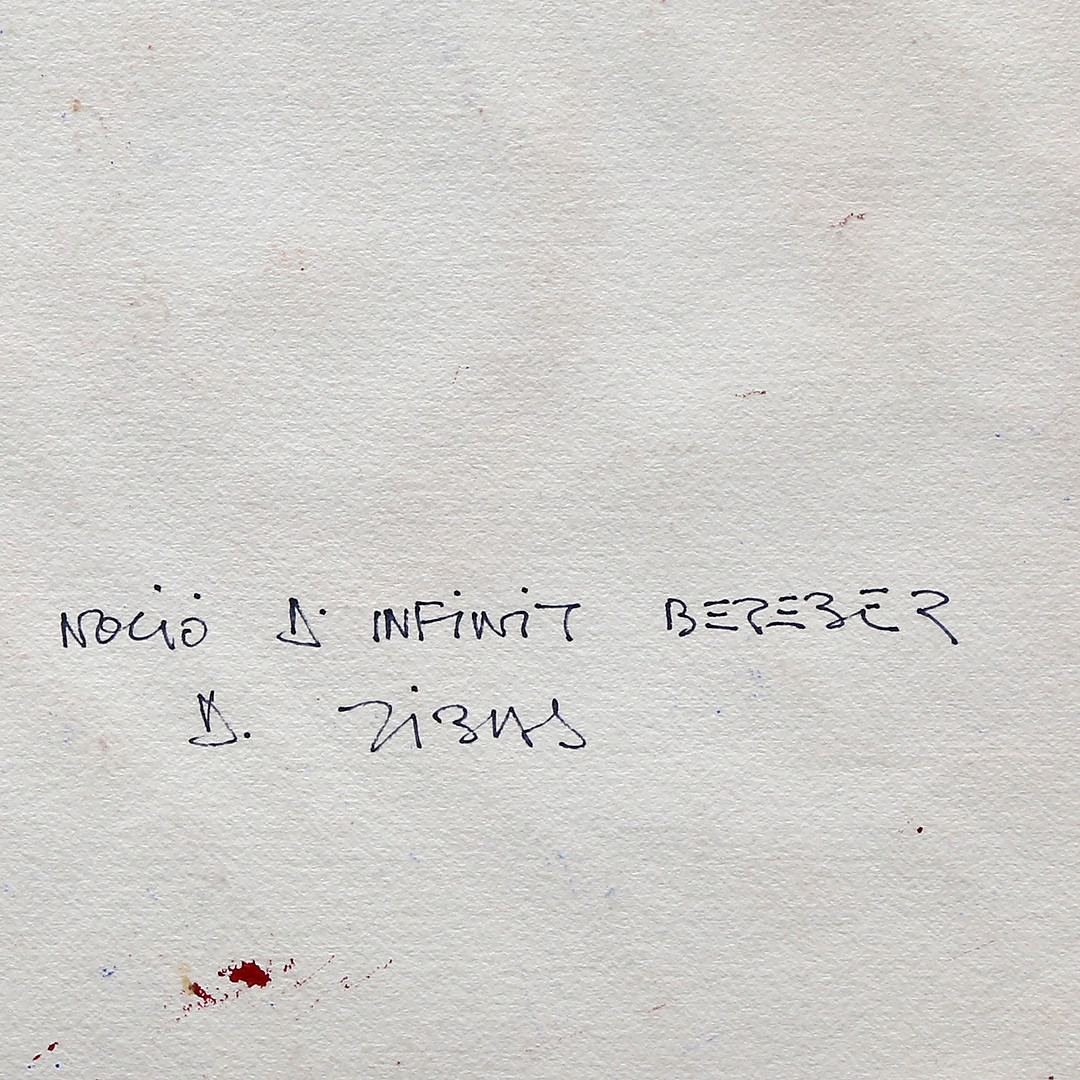 NOCIÓ D'INFINIT BEREBER
D. RIBAS